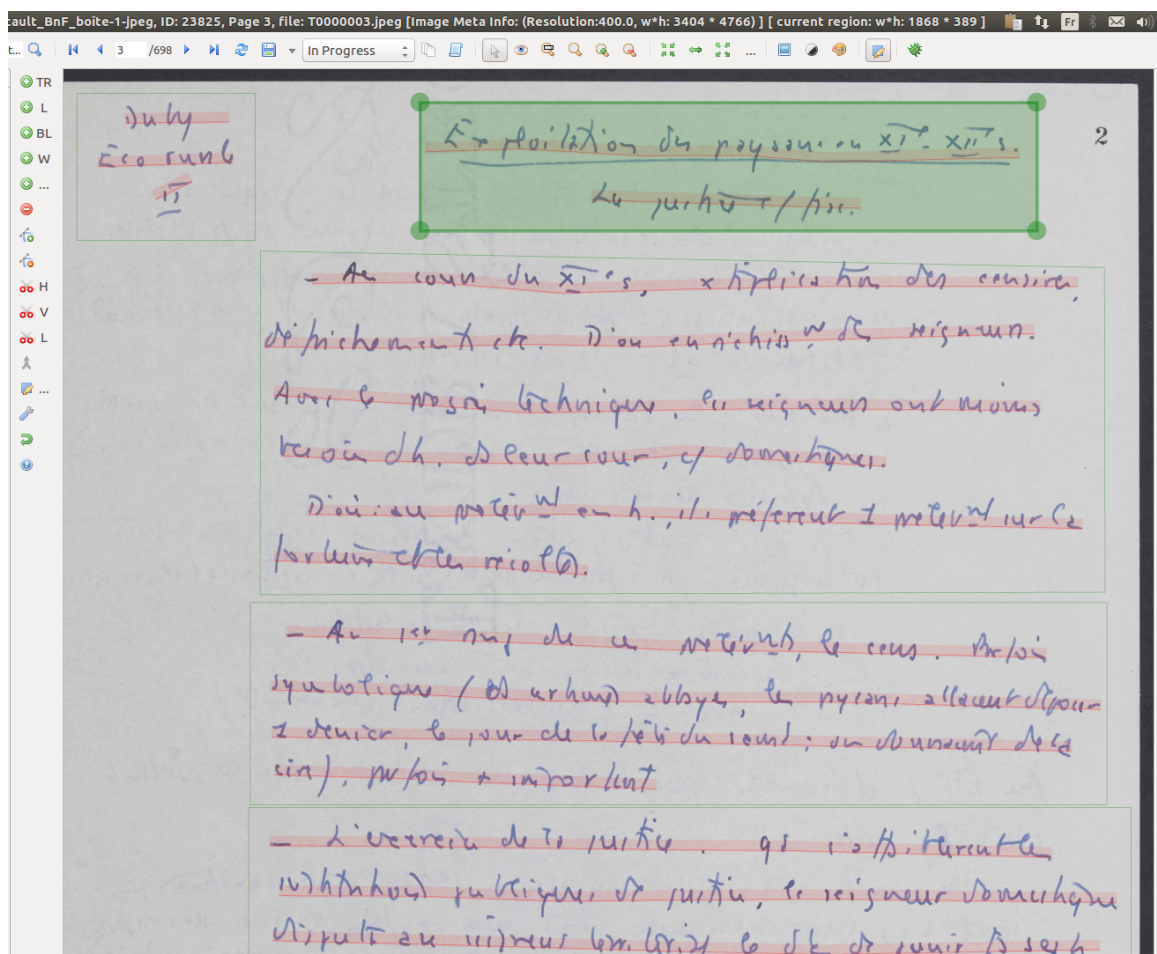 cault_BnF_boîte-1-jpeg, ID: 23825, Page 3, file: T0000003.jpeg [Image Meta Info: (Resolution:400.0, w*h: 3404 * 4766) ] [ current region: w*h: 1868 * 389 ] Fr
t... 3 /698 In Progress ...
TR
L
BL
W
...
H
V
L
...
Duby
Eco rurale
II
2
Exploitation des paysans au XIe - XIIe s.
La justice / fisc.
- Au cours du XIe s, xtiplication des
défrichements etc. D'où enrichissmt des seigneurs.
Avec le progrès technique, les seigneurs ont moins
besoin d'h. ds leur cour, c/ domestiques.
D'où : au prélèvmt en h., ils préfèrent 1 prélèvmt sur la
fortune et les récoltes.
- Au 1er rang de ce prélèvmts, le cens. Parfois
symbolique ( ds certaines abbayes, les paysans allaient déposer
1 denier, le jour de la fête du saint ; ou donnaient de la
cire), parfois + important
- L'exercice de la justice. qd s'effritèrent les
institutions publiques de justice, le seigneur domestique
disputa au seigneur territorial le dt de punir